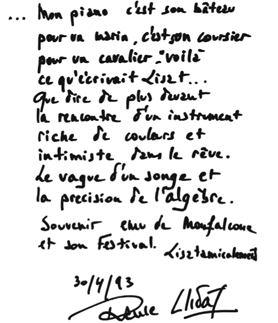 ... Mon piano c'est son bâteau
pour un marin, c'est son coursier
pour un cavalier, "voilà
ce qu'écrivait Liszt...
Que dire de plus devant
la rencontre d'un instrument
riche de couleurs et
intimiste dans le rêve.
Le vague d'un songe et
la precision de l'algèbre.
Souvenir ému de Monfalcone
et son Festival.
Lisztamicalement
30/4/93
France Clidat